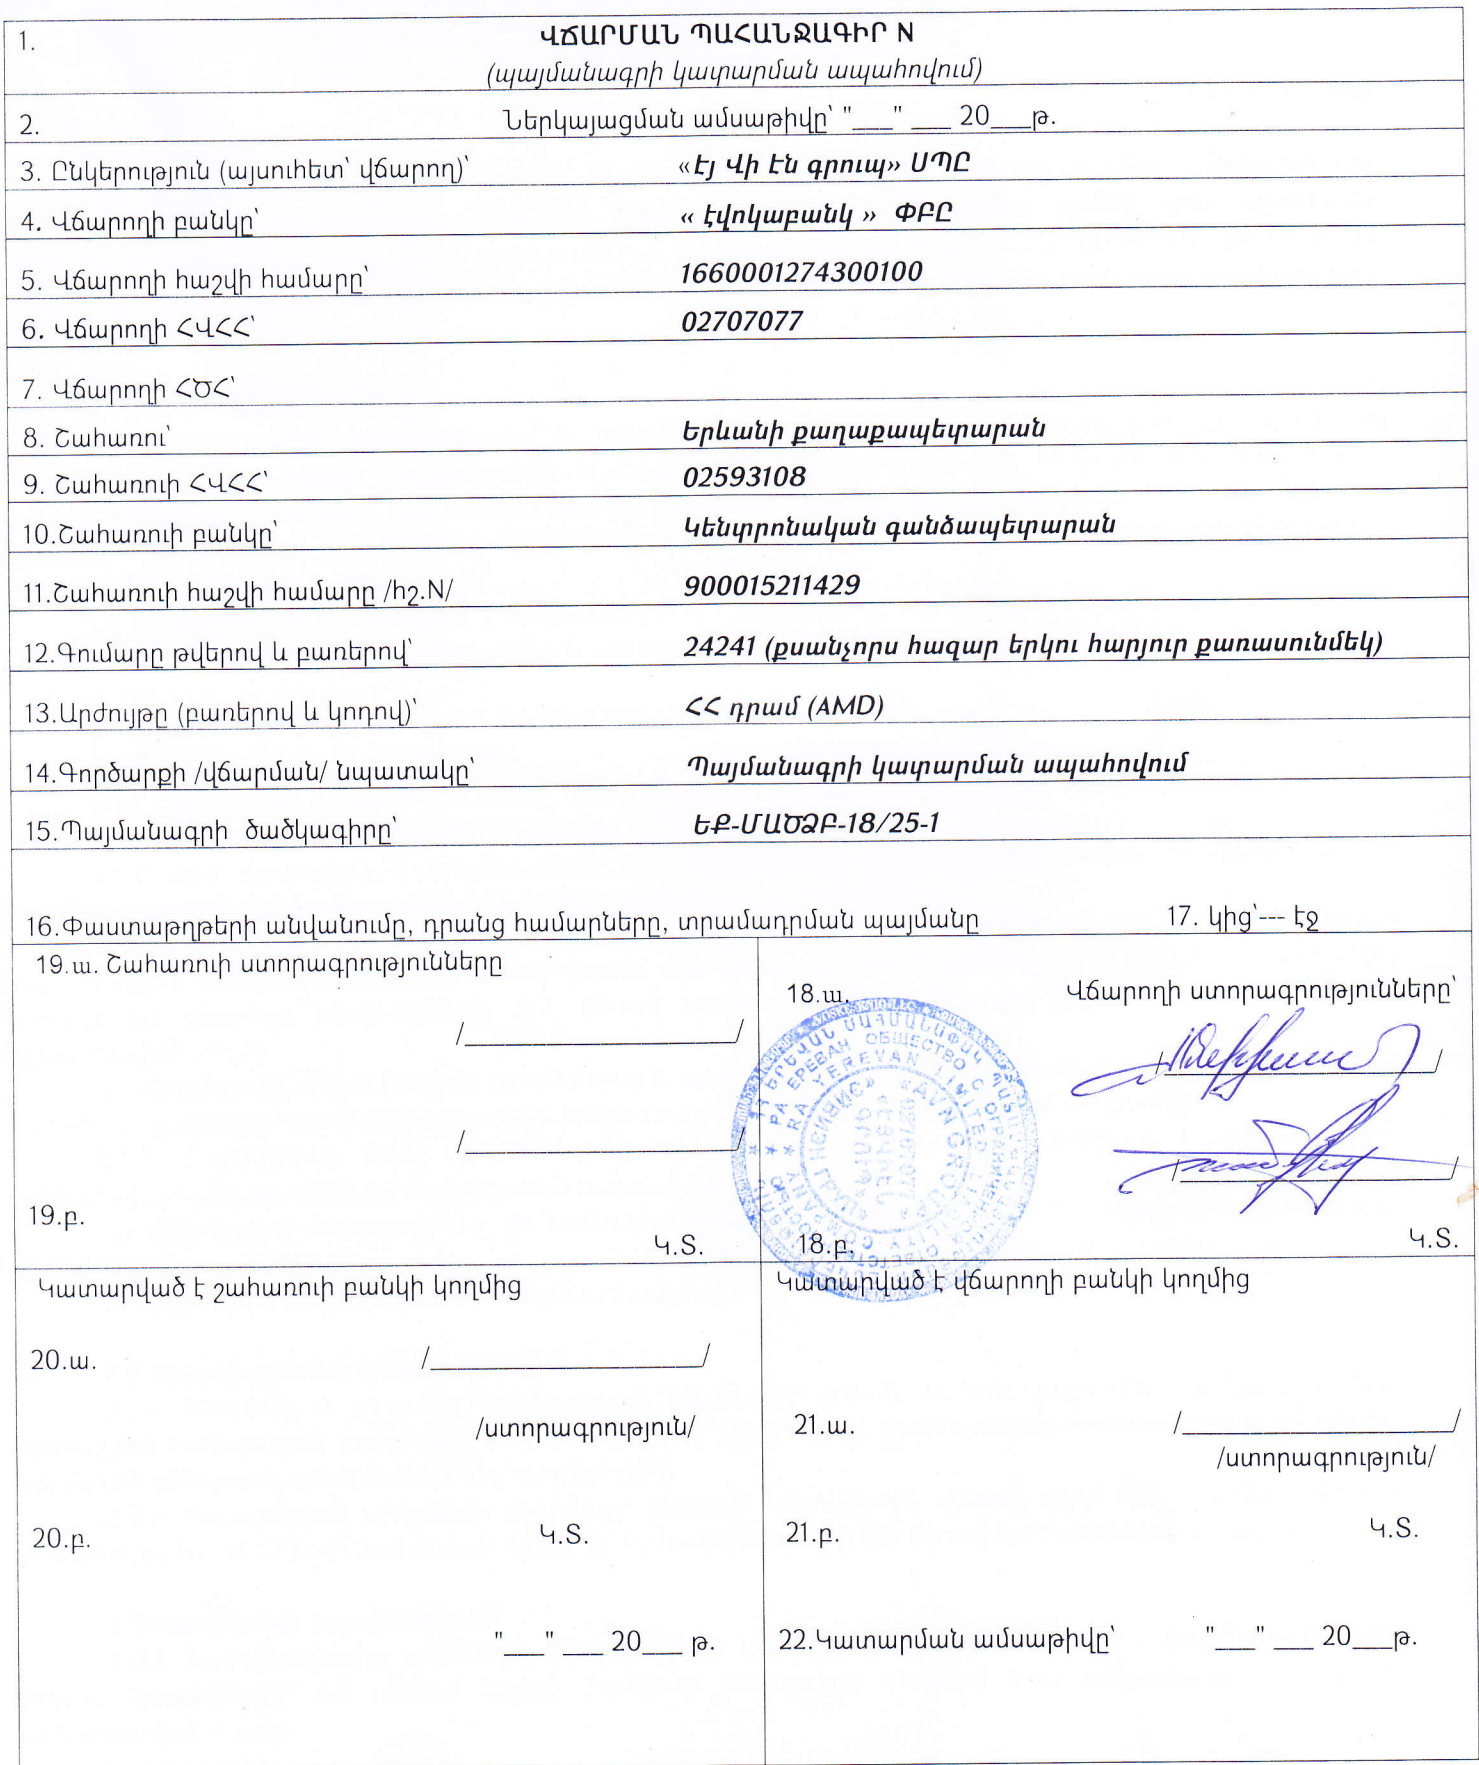 1. ՎՃԱՐՄԱՆ ՊԱՀԱՆՋԱԳԻՐ N
(պայմանագրի կատարման ապահովում)
2. Ներկայացման ամսաթիվը՝ "___" ___ 20___թ.
3. Ընկերություն (այսուհետ՝ վճարող)՝ «Էյ Վի Էն գրուպ» ՍՊԸ
4. Վճարողի բանկը՝ « Էվոկաբանկ » ՓԲԸ
5. Վճարողի հաշվի համարը՝ 1660001274300100
6. Վճարողի ՀՎՀՀ՝ 02707077
7. Վճարողի ՀԾՀ՝
8. Շահառու՝ Երևանի քաղաքապետարան
9. Շահառուի ՀՎՀՀ՝ 02593108
10.Շահառուի բանկը՝ Կենտրոնական գանձապետարան
11.Շահառուի հաշվի համարը /հշ.N/ 900015211429
12.Գումարը թվերով և բառերով՝ 24241 (քսանչորս հազար երկու հարյուր քառասունմեկ)
13.Արժույթը (բառերով և կոդով)՝ ՀՀ դրամ (AMD)
14.Գործարքի /վճարման/ նպատակը՝ Պայմանագրի կատարման ապահովում
15.Պայմանագրի ծածկագիրը՝ ԵՔ-ՄԱԾՁԲ-18/25-1
16.Փաստաթղթերի անվանումը, դրանց համարները, տրամադրման պայմանը 17. կից՝--- էջ
19.ա. Շահառուի ստորագրությունները
/____________________/
/____________________/
19.բ.
Կ.Տ.
18.ա. Վճարողի ստորագրությունները՝
/____________________/
/____________________/
18.բ. Կ.Տ.
RA YEREVAN LIMITED LIABILITY COMPANY
«AVN GROUP»
02707077
Կատարված է շահառուի բանկի կողմից
20.ա. /____________________/
/ստորագրություն/
20.բ. Կ.Տ.
"___" ___ 20___ թ.
Կատարված է վճարողի բանկի կողմից
21.ա. /____________________/
/ստորագրություն/
21.բ. Կ.Տ.
22.Կատարման ամսաթիվը՝ "___" ___ 20___թ.